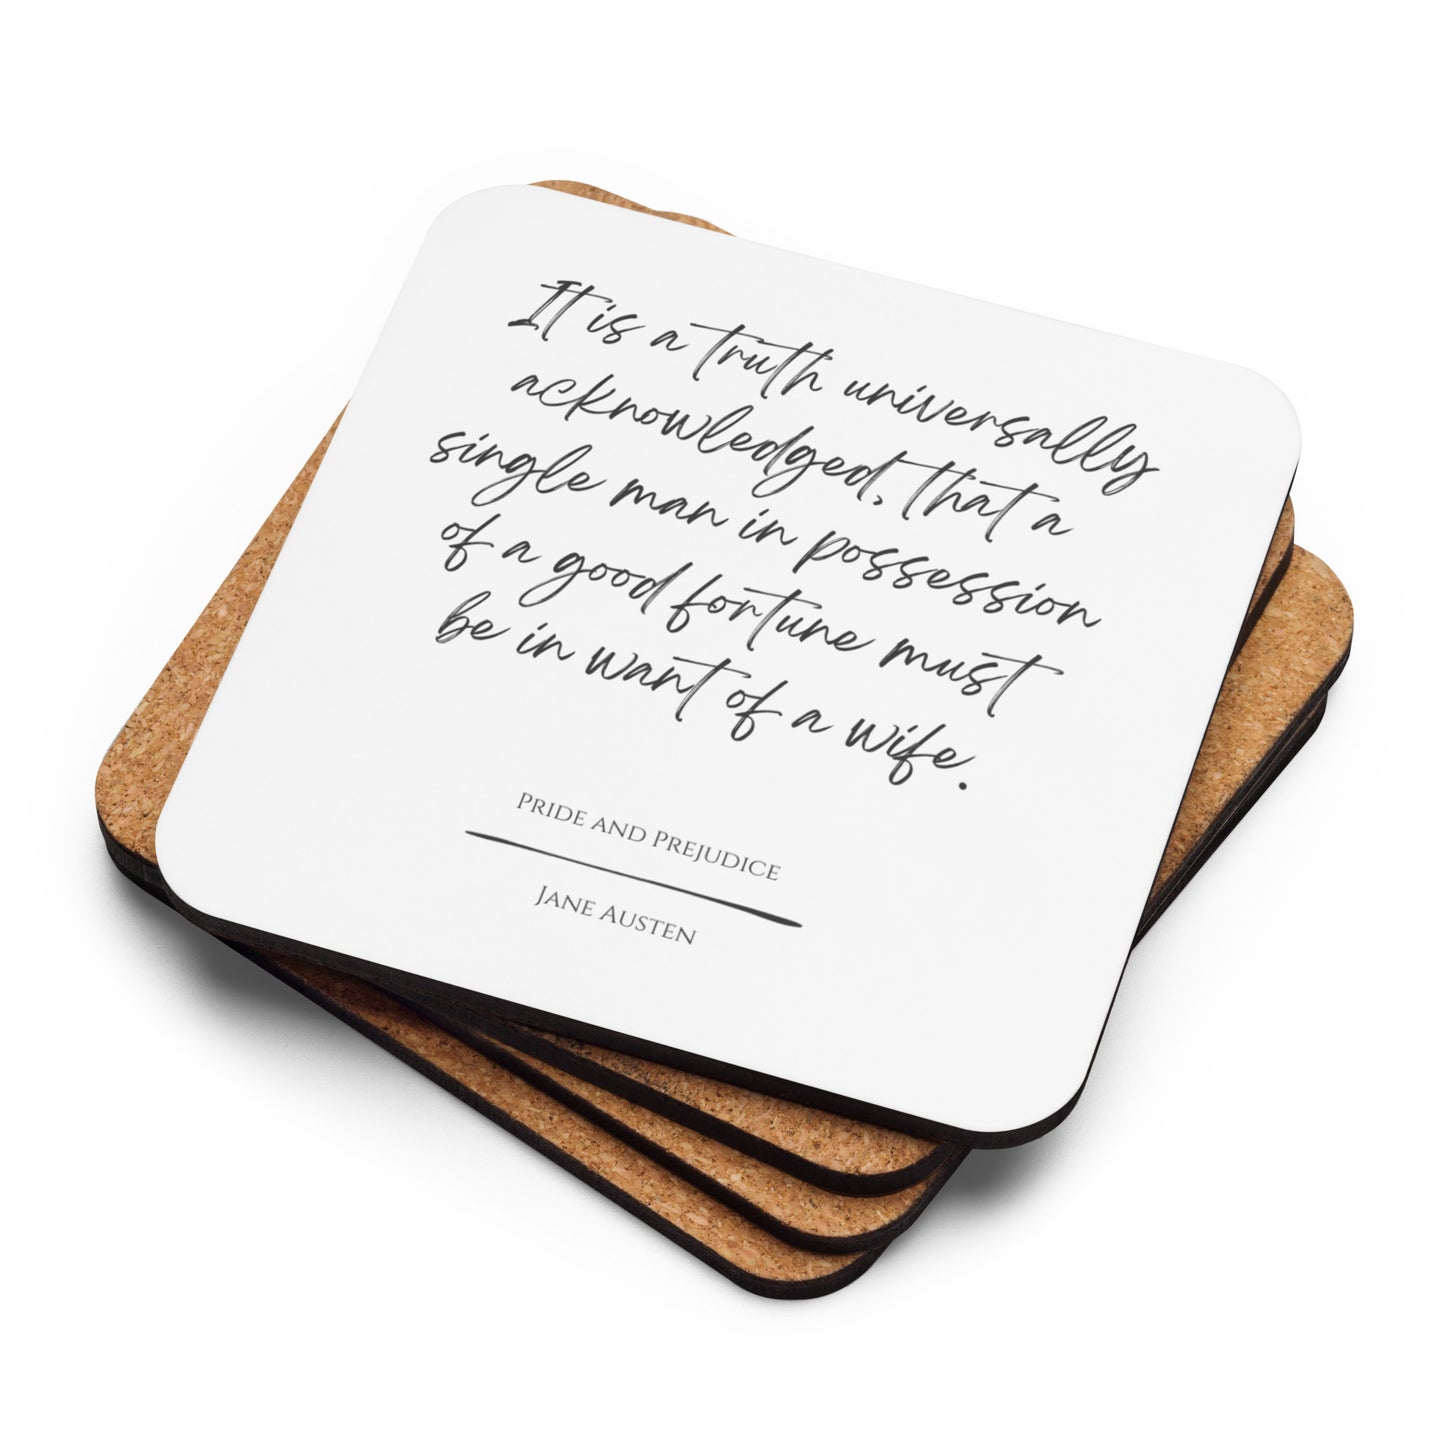 It is a truth universally
acknowledged, that a
single man in possession
of a good fortune must
be in want of a wife.
Pride and Prejudice
Jane Austen